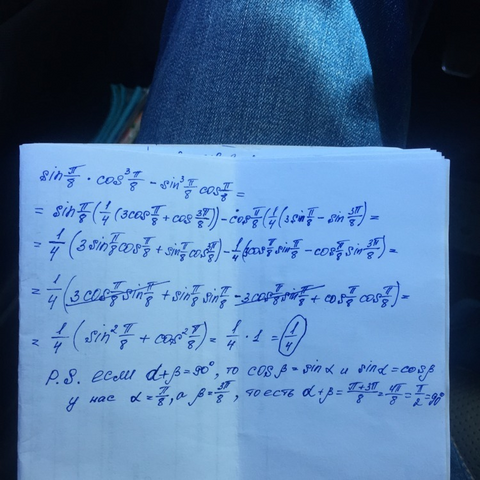 sin π/8 · cos³ π/8 − sin³ π/8 cos π/8 =
= sin π/8 (1/4 (3cos π/8 + cos 3π/8)) − cos π/8 (1/4 (3sin π/8 − sin 3π/8) =
= 1/4 (3 sin π/8 cos π/8 + sin π/8 cos 3π/8) − 1/4 (3cos π/8 sin π/8 − cos π/8 sin 3π/8) =
= 1/4 (3 cos π/8 sin π/8 + sin π/8 sin π/8 − 3 cos π/8 sin π/8 + cos π/8 cos π/8) =
= 1/4 (sin² π/8 + cos² π/8) = 1/4 · 1 = 1/4
P.S. если α+β=90°, то cosβ=sinα и sinα=cosβ
у нас α=π/8, а β=3π/8, то есть α+β=π+3π/8=4π/8=π/2=90°